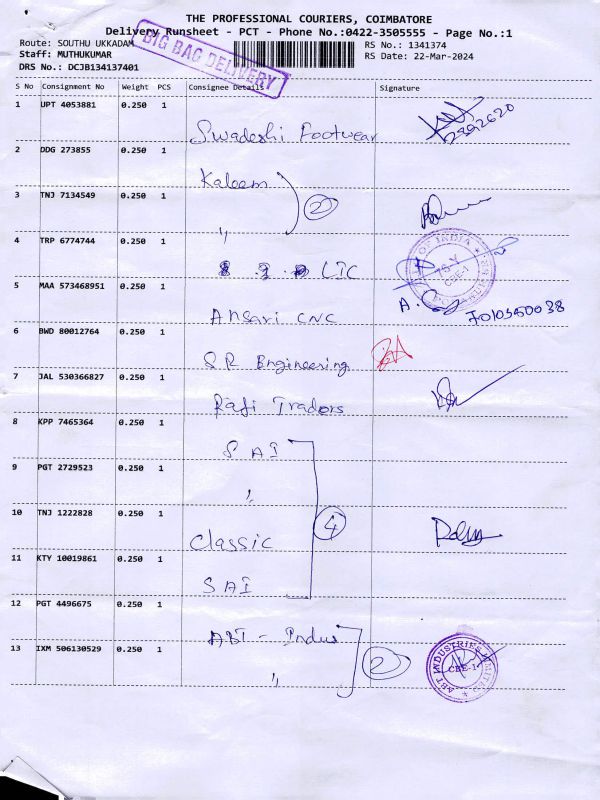 THE PROFESSIONAL COURIERS, COIMBATORE
Delivery Runsheet - PCT - Phone No.:0422-3505555 - Page No.:1
Route: SOUTHU UKKADAM
RS No.: 1341374
Staff: MUTHUKUMAR
RS Date: 22-Mar-2024
DRS No.: DCJB134137401
BIG BAG DELIVERY
S No Consignment No Weight PCS Consignee Details Signature
1 UPT 4053881 0.250 1 Swadeshi Footwear
2 DDG 273855 0.250 1 Kaleem
2
3 TNJ 7134549 0.250 1 "
4 TRP 6774744 0.250 1 LIC
5 MAA 573468951 0.250 1 Ansari CNC
6 BWD 80012764 0.250 1 S R Engineering
7 JAL 530366827 0.250 1 Rafi Tradors
8 KPP 7465364 0.250 1 SAI
9 PGT 2729523 0.250 1 "
4
10 TNJ 1222828 0.250 1 Classic
11 KTY 10019861 0.250 1 SAI
12 PGT 4496675 0.250 1 ABT - Indus
2
13 IXM 506130529 0.250 1 "
ABT INDUSTRIES LIMITED
CBE-1